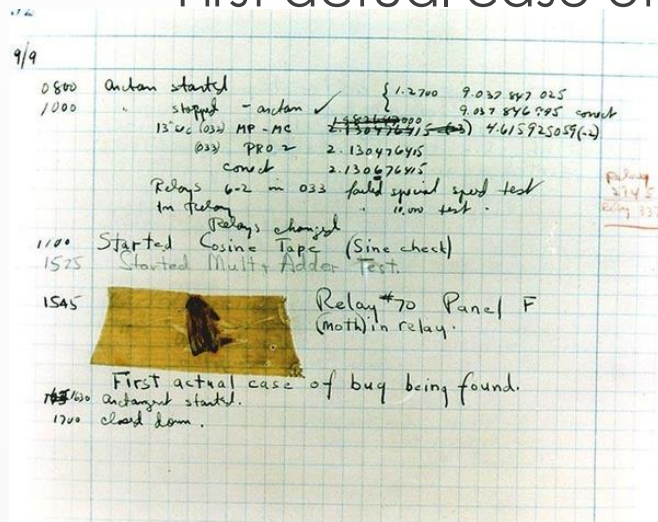 First actual case of
9/9
0800 antan started
1000 " stopped - antan ✓ { 1.2700 9.037 847 025
9.037 846 795 conect
13" uc (032) MP - MC 2.130476415 (-3) 4.615925059 (-2)
(033) PRO 2 2.130476415
conect 2.130676415
Relays 6-2 in 033 failed special speed test
In Relay " 10.000 test .
Relays changed
Relay
3370
1100 Started Cosine Tape (Sine check)
1525 Started Mult + Adder Test.
1545 Relay #70 Panel F
(moth) in relay.
First actual case of bug being found.
1630 antangent started.
1700 closed down .